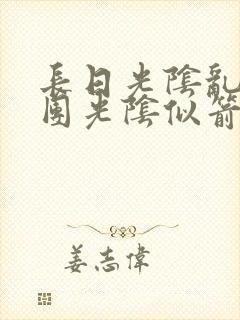 長日光陰亂
團光陰似箭
姜志偉